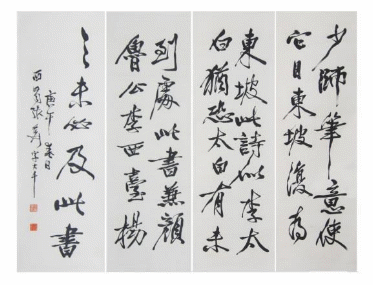 少師筆意使
它日東坡復為
東坡此詩似李太
白猶恐太白有未
到處此書兼顏
魯公李西臺楊
之未必及此書
庚午春日
西蜀張爰字大千